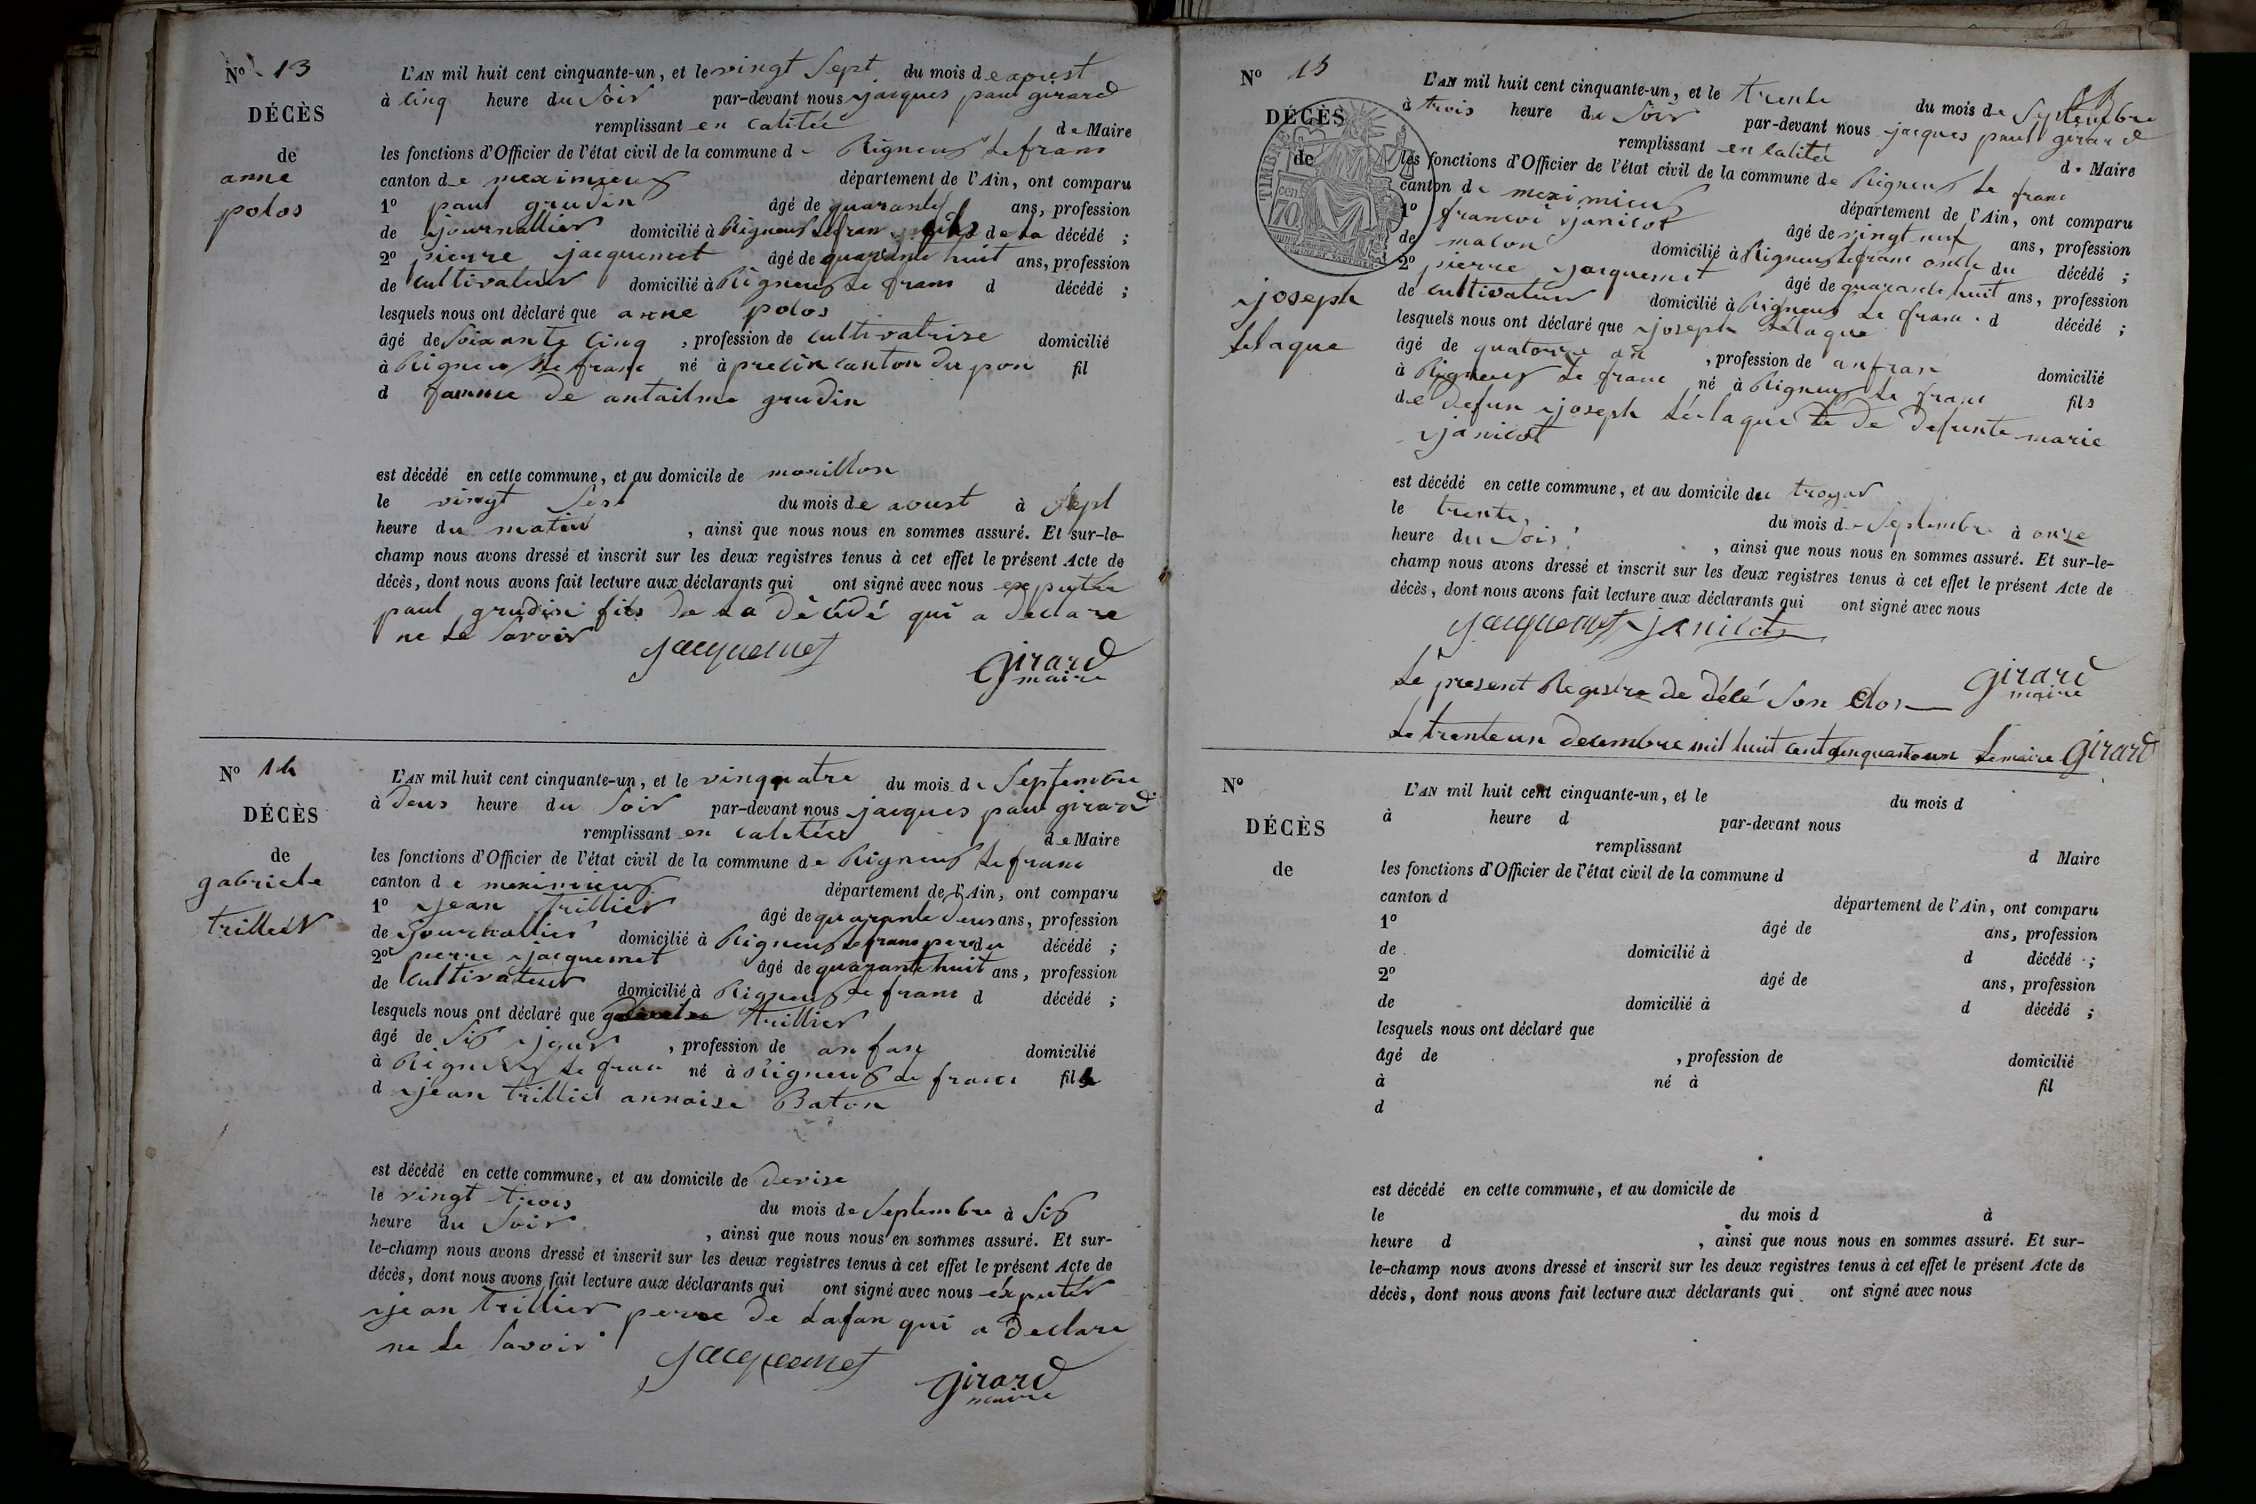 N° 13
DÉCÈS
de
anne
polos
L'AN mil huit cent cinquante-un, et le vingt sept du mois de aoust
à cinq heure du soir par-devant nous jacques paul girard
remplissant en calitée de Maire
les fonctions d'Officier de l'état civil de la commune de Rigneux le franc
canton de meximieux département de l'Ain, ont comparu
1° paul grudin âgé de quarante ans, profession
de journallier domicilié à Rigneux le franc fils de la décédé ;
2° pierre jacquemet âgé de quarante huit ans, profession
de cultivateur domicilié à Rigneux le franc d décédé ;
lesquels nous ont déclaré que anne polos
âgé de soixante cinq , profession de cultivatrise domicilié
à Rigneux le franc né à canton du pon fil
d famme de antailme grudin
est décédé en cette commune, et au domicile de morillon
le vingt sept du mois de aoust à sept
heure du matin , ainsi que nous nous en sommes assuré. Et sur-le-
champ nous avons dressé et inscrit sur les deux registres tenus à cet effet le présent Acte de
décès, dont nous avons fait lecture aux déclarants qui ont signé avec nous exeptée
paul grudin fils de la décédé qui a declare
ne le savoir
jacquemet
girard
maire
N° 14
DÉCÈS
de
gabriele
trillier
L'AN mil huit cent cinquante-un, et le vinquatre du mois de septembre
à deus heure du soir par-devant nous jacques paul girard
remplissant en calitée de Maire
les fonctions d'Officier de l'état civil de la commune de Rigneux le franc
canton de meximieux département de l'Ain, ont comparu
1° jean trillier âgé de quarante deus ans, profession
de journallier domicilié à Rigneux le franc pere du décédé ;
2° pierre jacquemet âgé de quarante huit ans, profession
de cultivateur domicilié à Rigneux le franc d décédé ;
lesquels nous ont déclaré que gabriele trillier
âgé de six jour , profession de anfan domicilié
à Rigneux le franc né à Rigneux le franc fil
d jean trillier annoise Baton
est décédé en cette commune, et au domicile de devise
le vingt trois du mois de septembre à six
heure du soir , ainsi que nous nous en sommes assuré. Et sur-
le-champ nous avons dressé et inscrit sur les deux registres tenus à cet effet le présent Acte de
décès, dont nous avons fait lecture aux déclarants qui ont signé avec nous exeptée
jean trillier perre de lafan qui a declare
ne le savoir
jacquemet
girard
maire
N° 15
DÉCÈS
de
joseph
lelaque
TIMBRE
cen
70
L'AN mil huit cent cinquante-un, et le trente du mois de septembre
à trois heure du soir par-devant nous jacques paul girard
remplissant en calitée de Maire
les fonctions d'Officier de l'état civil de la commune de Rigneux le franc
canton de meximieux département de l'Ain, ont comparu
1° francoi janicot âgé de vingt neuf ans, profession
de macon domicilié à Rigneux le franc oncle du décédé ;
2° pierre jacquemet âgé de quarante huit ans, profession
de cultivateur domicilié à Rigneux le franc d décédé ;
lesquels nous ont déclaré que joseph lelaque
âgé de quatorze an , profession de anfran domicilié
à Rigneux le franc né à Rigneux le franc fils
de defun joseph lelaque de defunte marie
janicot
est décédé en cette commune, et au domicile du troyar
le trente du mois de septembre à onze
heure du soir , ainsi que nous nous en sommes assuré. Et sur-le-
champ nous avons dressé et inscrit sur les deux registres tenus à cet effet le présent Acte de
décès, dont nous avons fait lecture aux déclarants qui ont signé avec nous
jacquemet janicot
girard
maire
Le present Registre de décé son clos
le trente un decembre mil huit cent cinquanteun le maire girard
N°
DÉCÈS
de
L'AN mil huit cent cinquante-un, et le du mois d
à heure d par-devant nous
remplissant d Maire
les fonctions d'Officier de l'état civil de la commune d
canton d département de l'Ain, ont comparu
1° âgé de ans, profession
de domicilié à d décédé ;
2° âgé de ans, profession
de domicilié à d décédé ;
lesquels nous ont déclaré que
âgé de , profession de domicilié
à né à fil
d
est décédé en cette commune, et au domicile de
le du mois d à
heure d , ainsi que nous nous en sommes assuré. Et sur-
le-champ nous avons dressé et inscrit sur les deux registres tenus à cet effet le présent Acte de
décès, dont nous avons fait lecture aux déclarants qui ont signé avec nous